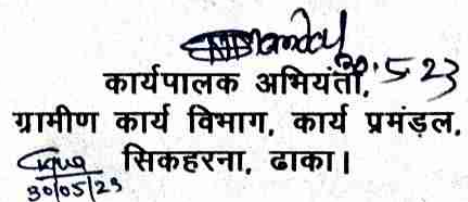 30.5.23
कार्यपालक अभियंता,
ग्रामीण कार्य विभाग, कार्य प्रमंड़ल,
सिकहरना, ढाका।
30/05/23